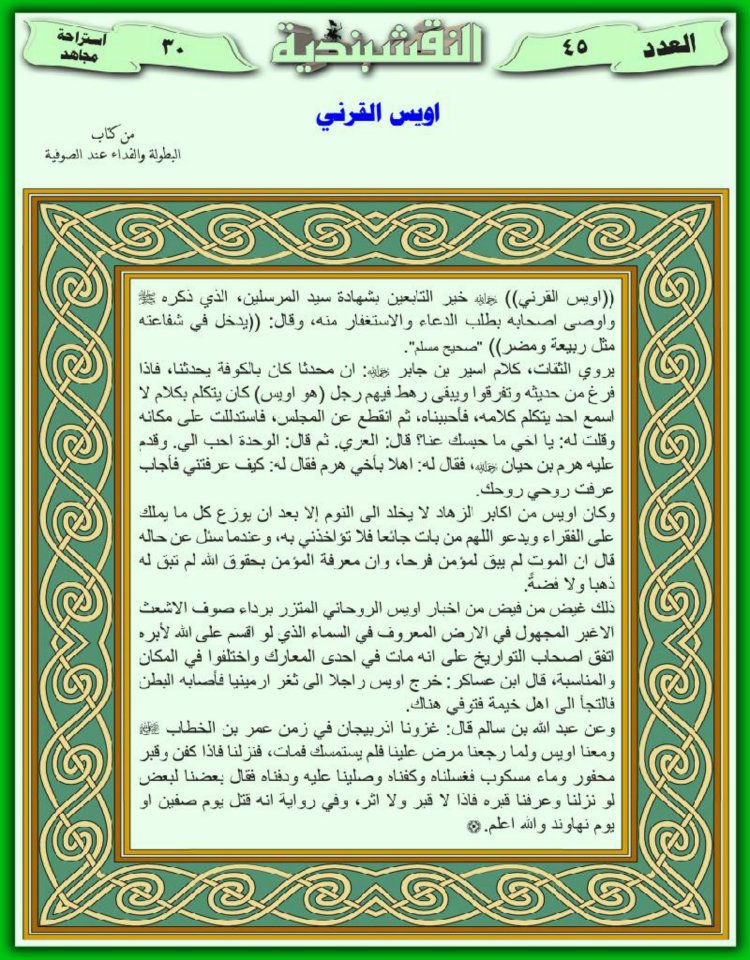 العدد
٤٥
النقشبندية
٣٠
استراحة
مجاهد
اويس القرني
من كتاب
البطولة والفداء عند الصوفية
((اويس القرني)) رحمه الله خير التابعين بشهادة سيد المرسلين، الذي ذكره ﷺ
واوصى اصحابه بطلب الدعاء والاستغفار منه، وقال: ((يدخل في شفاعته
مثل ربيعة ومضر)) "صحيح مسلم".
يروي الثقات، كلام اسير بن جابر رحمه الله: ان محدثا كان بالكوفة يحدثنا، فاذا
فرغ من حديثه وتفرقوا ويبقى رهط فيهم رجل (هو اويس) كان يتكلم بكلام لا
اسمع احد يتكلم كلامه، فأحببناه، ثم انقطع عن المجلس، فاستدللت على مكانه
وقلت له: يا اخي ما حبسك عنا؟ قال: العري. ثم قال: الوحدة احب الي. وقدم
عليه هرم بن حيان رحمه الله، فقال له: اهلا بأخي هرم فقال له: كيف عرفتني فأجاب
عرفت روحي روحك.
وكان اويس من اكابر الزهاد لا يخلد الى النوم إلا بعد ان يوزع كل ما يملك
على الفقراء ويدعو اللهم من بات جائعا فلا تؤاخذني به، وعندما سئل عن حاله
قال ان الموت لم يبق لمؤمن فرحا، وان معرفة المؤمن بحقوق الله لم تبق له
ذهبا ولا فضةً.
ذلك غيض من فيض من اخبار اويس الروحاني المتزر برداء صوف الاشعث
الاغبر المجهول في الارض المعروف في السماء الذي لو اقسم على الله لأبره
اتفق اصحاب التواريخ على انه مات في احدى المعارك واختلفوا في المكان
والمناسبة، قال ابن عساكر: خرج اويس راجلا الى ثغر ارمينيا فأصابه البطن
فالتجأ الى اهل خيمة فتوفي هناك.
وعن عبد الله بن سالم قال: غزونا اذربيجان في زمن عمر بن الخطاب رضي الله عنه
ومعنا اويس ولما رجعنا مرض علينا فلم يستمسك فمات، فنزلنا فاذا كفن وقبر
محفور وماء مسكوب فغسلناه وكفناه وصلينا عليه ودفناه فقال بعضنا لبعض
لو نزلنا وعرفنا قبره فاذا لا قبر ولا اثر، وفي رواية انه قتل يوم صفين او
يوم نهاوند والله اعلم.